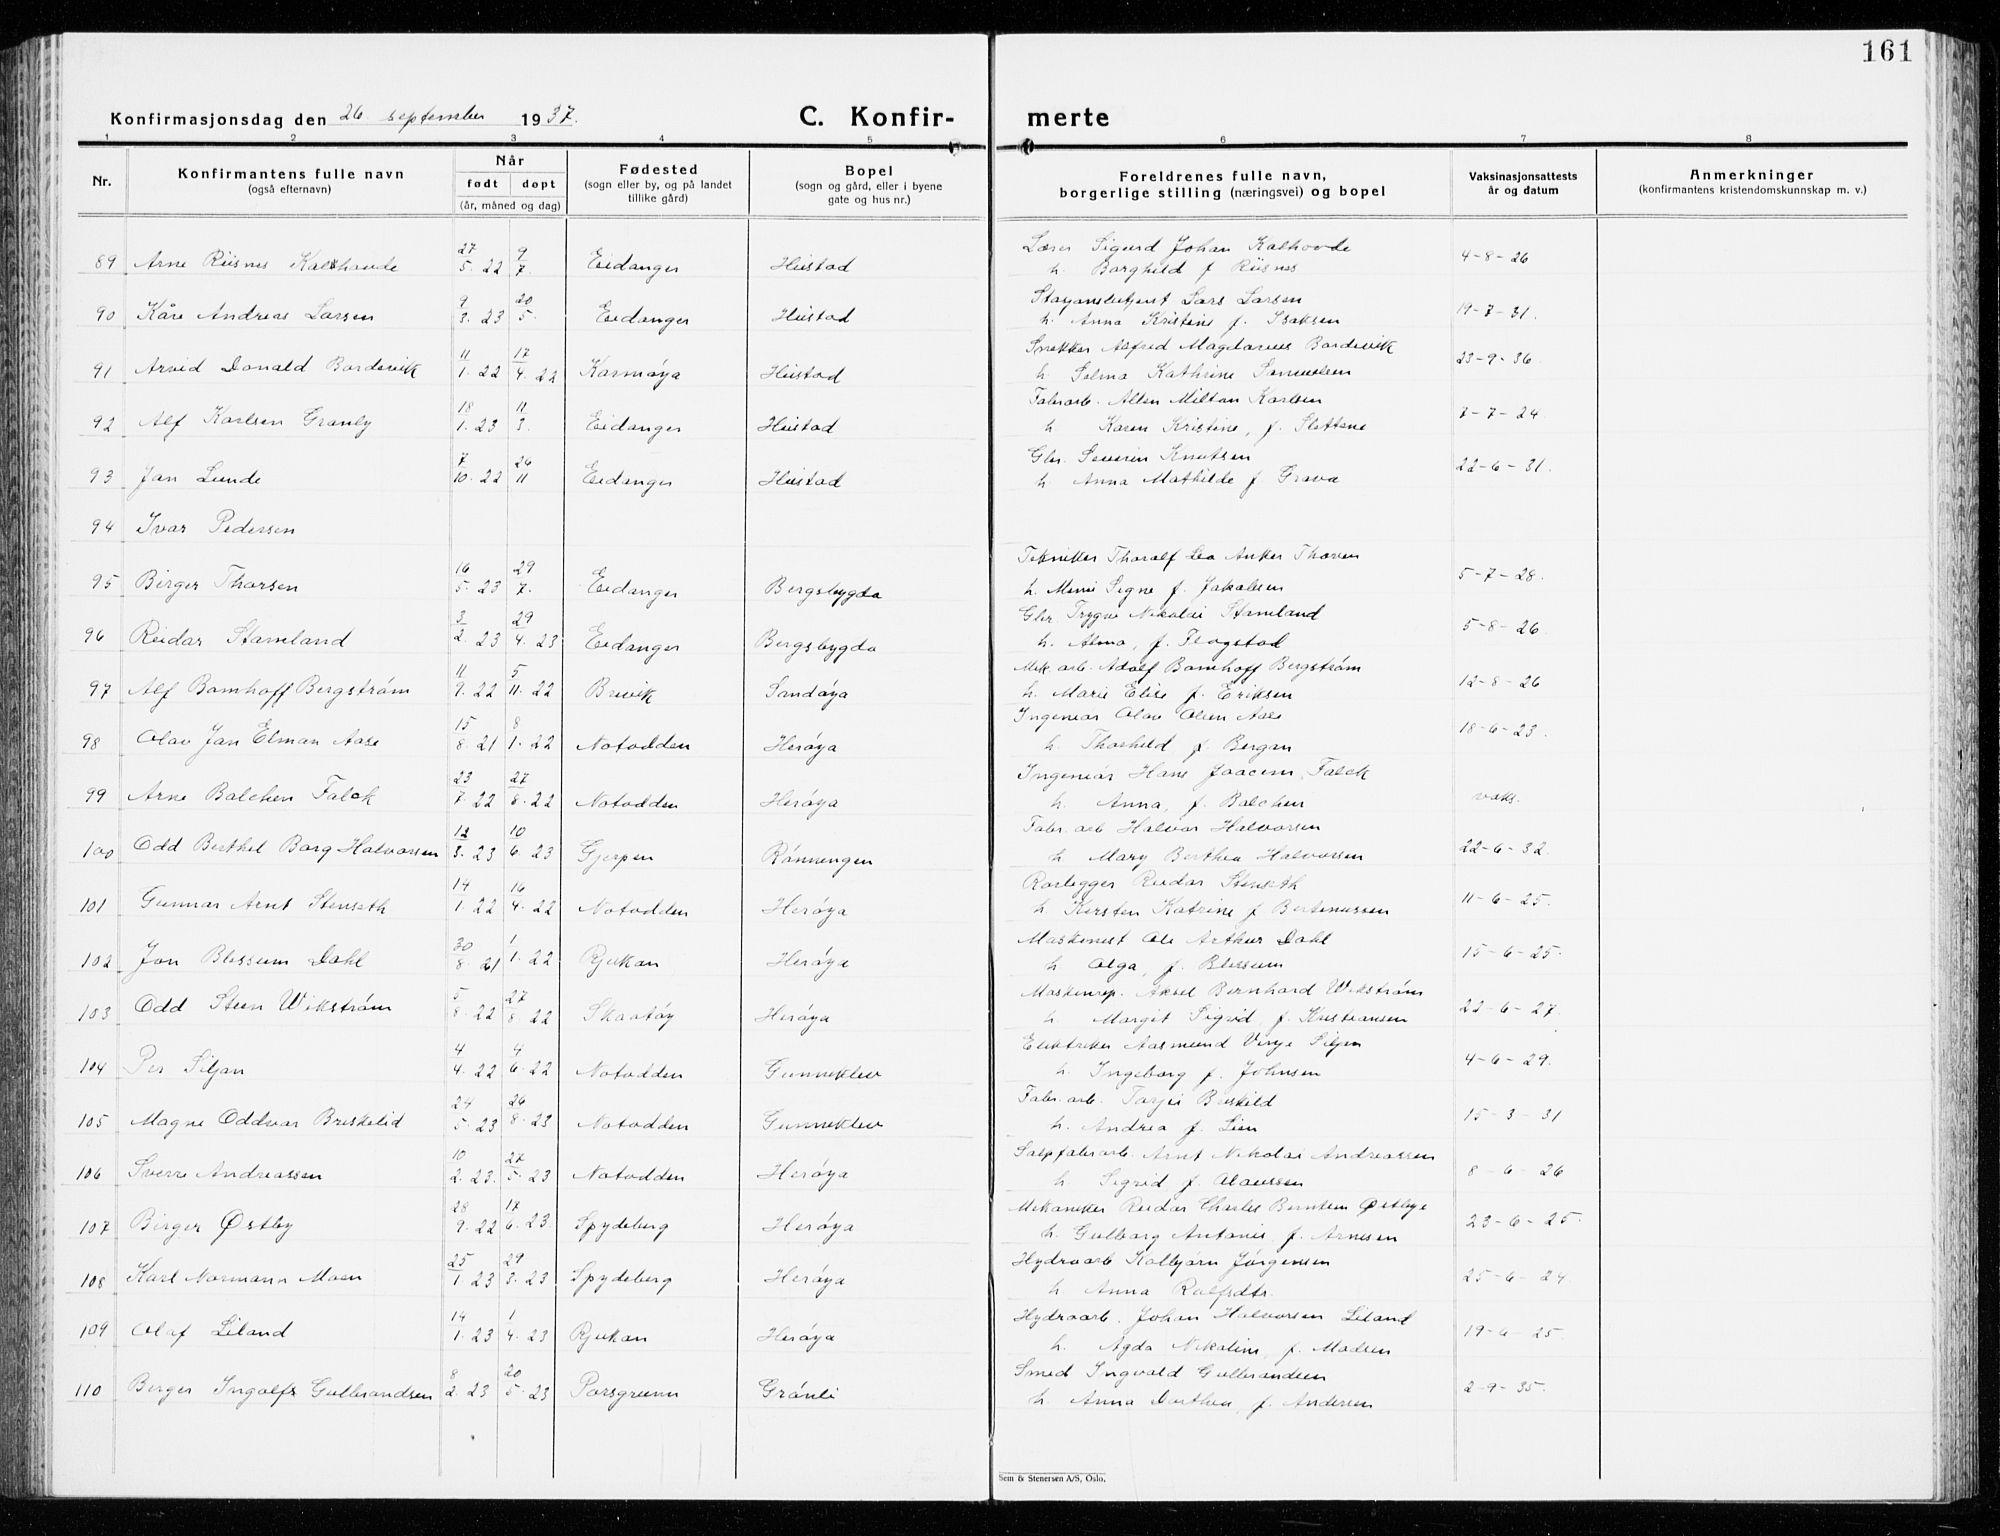 161
Konfirmasjonsdag den 26. september 1937.
C. Konfir-
merte
1 2 3 4 5 6 7 8
Nr.
Konfirmantens fulle navn
(også efternavn)
Når
født døpt
(år, måned og dag)
Fødested
(sogn eller by, og på landet
tillike gård)
Bopel
(sogn og gård, eller i byene
gate og hus nr.)
Foreldrenes fulle navn,
borgerlige stilling (næringsvei) og bopel
Vaksinasjonsattests
år og datum
Anmerkninger
(konfirmantens kristendomskunnskap m. v.)
89 Arne Riisnes Kalhovde 27/5. 22 9/7. Eidanger Heistad Lærer Sigurd Johan Kalhovde 4-8-26
h. Borghild f. Riisnes
90 Kåre Andreas Larsen 9/3. 23 20/5. Eidanger Heistad Lars Larsen 19-7-31.
h. Anna Kristine f. Isaksen
91 Arvid Donald Bordevik 11/1. 22 17/4. 22 Karmøya Heistad Snekker Alfred Magdanius Bordevik 23-9-36.
h. Selma Kathrine Samuelsen
92 Alf Karlsen Granly 18/1. 23 11/3. Eidanger Heistad Fabr.arb. Alten Milton Karlsen 7-7-24.
h. Karen Kristine, f. Slettene
93 Jan Lunde 7/10. 22 26/11 Eidanger Heistad Gbr. Severin Knutsen 22-6-31.
h. Anna Mathilde f. Grava
94 Ivar Pedersen
95 Birger Thorsen 16/5. 23 29/7. Eidanger Bergsbygda Tekniker Thoralf Leo Anker Thorsen 5-7-28.
h. Mimi Signe f. Jakobsen
96 Reidar Stamland 3/2. 23 29/4. 23 Eidanger Bergsbygda Gbr. Trygve Nikolai Stamland 5-8-26.
h. Alma, f. Flogstad
97 Alf Bomhoff Bergstrøm 11/9. 22 5/11. 22 Brevik Sandøya Mek. arb. Adolf Bomhoff Bergstrøm 12-8-26
h. Marie Elise f. Eriksen
98 Olav Jan Elman Aase 15/8. 21 8/1. 22 Notodden Herøya Ingeniør Olav Olsen Aase 18-6-23.
h. Thorhild f. Bergan
99 Arne Balchen Falck 23/7. 22 27/8. 22 Notodden Herøya Ingeniør Hans Joacim Falck vaks.
h. Anna, f. Balchen
100 Odd Berthel Borg Halvorsen 12/3. 23 10/6. 23 Gjerpen Rønningen Fabr. arb Halvor Halvorsen 22-6-32.
h. Mary Berthea Halvorsen
101 Gunnar Arnt Stenseth 14/1. 22 16/4. 22 Notodden Herøya Rørlegger Reidar Stenseth 11-6-25.
h. Kirsten Katrine f Bertinussen
102 Jon Blessum Dahl 30/8. 21 1/1. 22 Rjukan Herøya Maskinist Ole Arthur Dahl 15-6-25.
h. Olga, f. Blessum
103 Odd Steen Wikstrøm 5/8. 22 27/8. 22 Skåtøy Herøya Maskinrep. Aksel Bernhard Wikstrøm 22-6-27.
h. Margit Sigrid, f. Kristiansen
104 Per Siljan 4/4. 22 4/6. 22 Notodden Gunneklev Elektriker Aasmund Vinje Siljan 4-6-29.
h. Ingeborg f. Johnsen
105 Magne Oddvar Briskelid 24/5. 23 26/8. 23 Notodden Gunneklev Fabr. arb. Tarjei Briskelid 15-3-31
h. Andrea f. Lien
106 Sverre Andreassen 10/2. 23. 27/5. 23 Notodden Herøya Salpfabr.arb. Arnt Nikolai Andreassen 8-6-26
h. Sigrid f. Olaussen
107 Birger Østby 28/9. 22 17/6. 23. Spydeberg Herøya Mekaniker Reidar Charles Berntsen Østbye 23-6-25.
h. Gulborg Antonie f. Arnesen
108 Karl Normann Moen 25/1. 23 29/3. 23 Spydeberg Herøya Hydroarb Kolbjørn Jørgensen 25-6-24.
h. Anna Rolfsdtr.
109 Olaf Liland 14/1. 23 1/4. 23 Rjukan Herøya Hydroarb. Johan Halvorsen Liland 19-6-25.
h. Agda Nikoline, f. Madsen
110 Birger Ingolfs Gulbrandsen 8/2. 23 20/5. 23 Porsgrunn Grønli Smed Ingvald Gulbrandsen 2-9-35.
h. Anna Dorthea, f. Andersen
Sem & Stenersen A/S, Oslo.